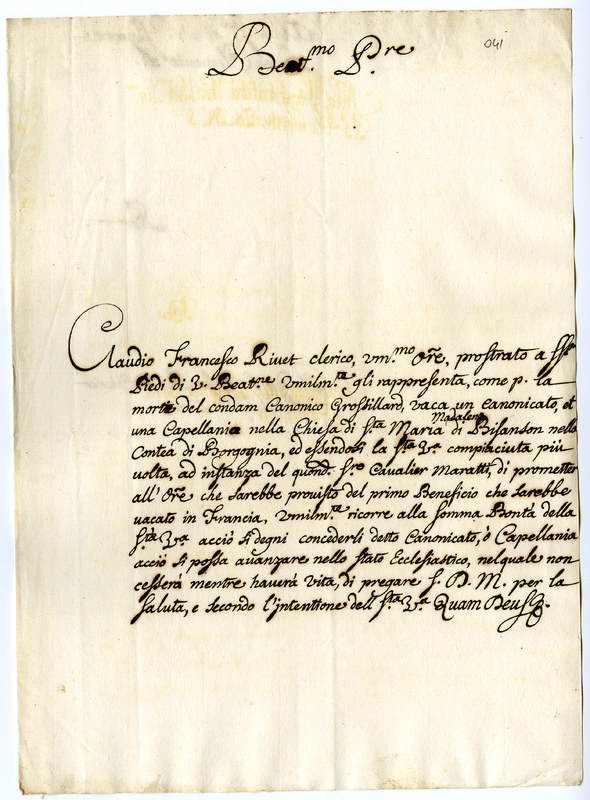 041
Beat.mo P.re
Claudio Francesco Rivet clerico, vm.mo Ore, prostrato a SS.i
Piedi di V. Beat.ne vmilm.ta gli rappresenta, come p. la
morte del condam Canonico Grossillard, vaca un canonicato, et
Madalena
una Capellania nella Chiesa di S.ta Maria di Bisanson nella
Contea di Borgognia, ed essendosi la S.ta V.a compiaciuta più
volta, ad instanza del quond. S.re Cavalier Maratti, di prometter
all' Ore che sarebbe provisto del primo Beneficio che sarebbe
vacato in Francia, vmilm.ta ricorre alla somma Bontà della
S.ta V.a acciò si degni concederli detto Canonicato, ò Capellania
acciò si possa avanzare nello stato Ecclesiastico, nel quale non
cesserà mentre haverà vita, di pregare S. D. M. per la
saluta, e secondo l'intentione dell S.ta V.a Quam Deus